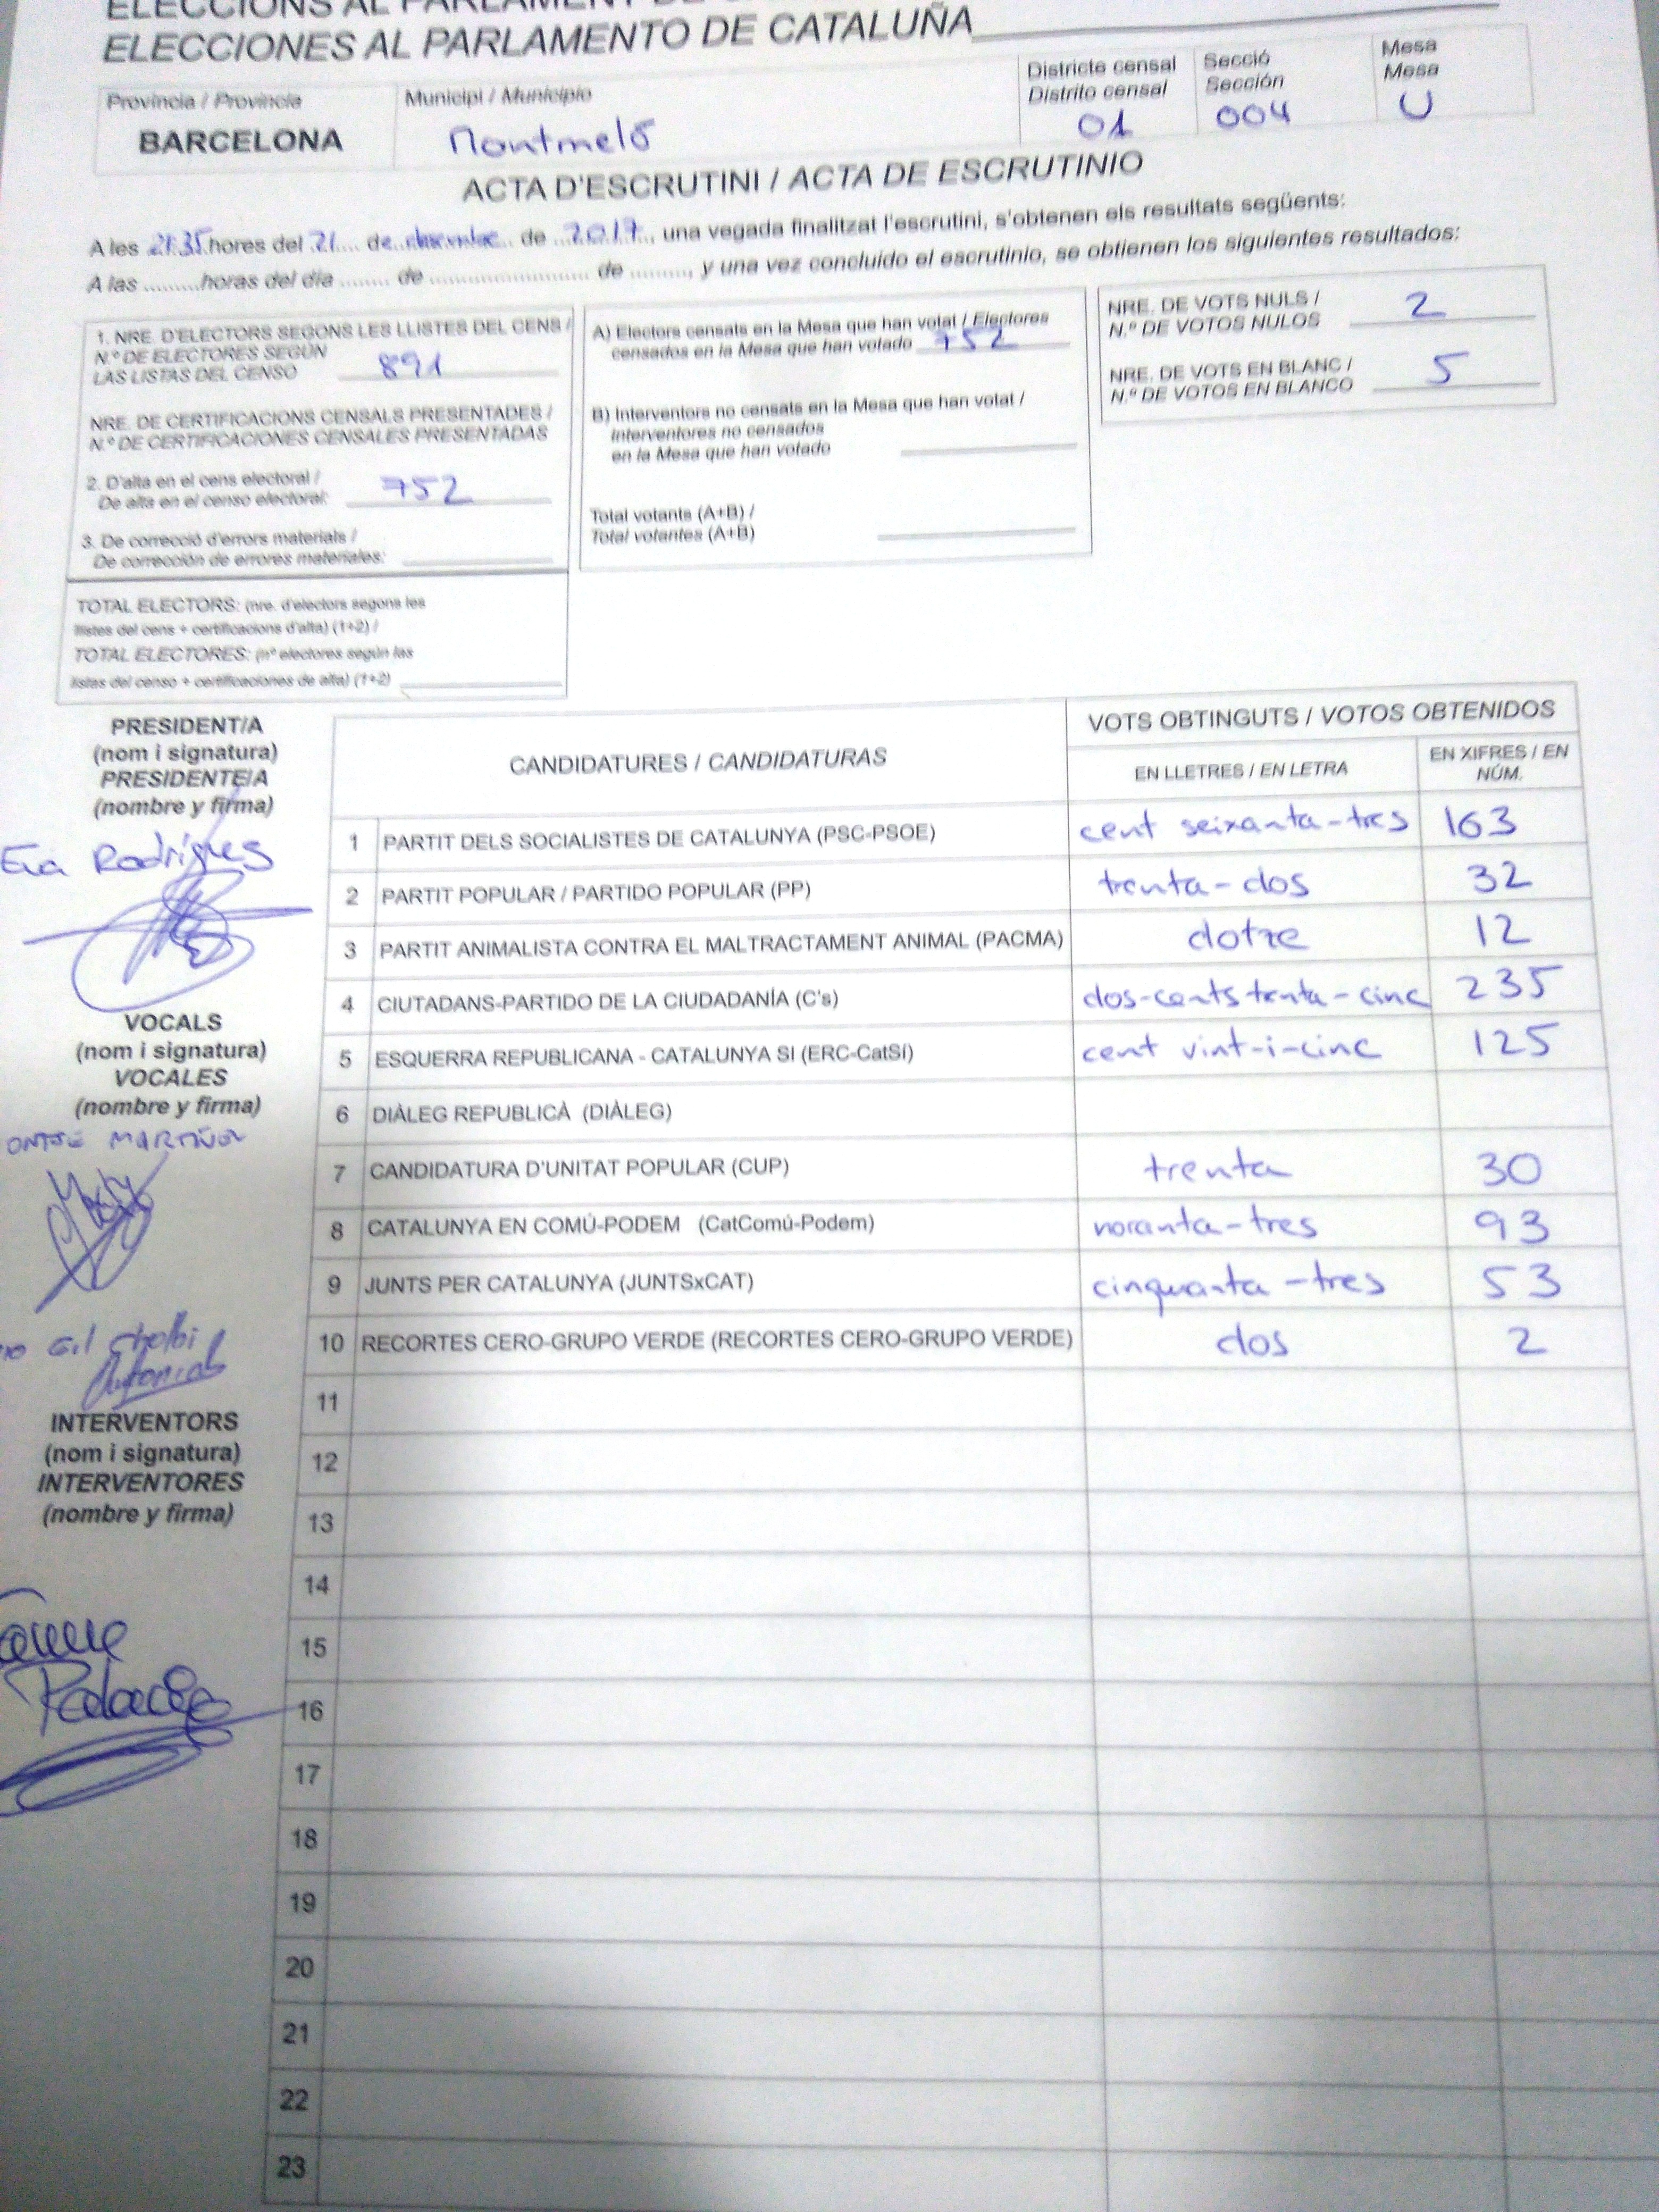 ELECCIONS AL PARLAMENT DE
ELECCIONES AL PARLAMENTO DE CATALUÑA
Província / Provincia
BARCELONA
Municipi / Municipio
Montmeló
Districte censal
Distrito censal
01
Secció
Sección
004
Mesa
Mesa
U
ACTA D'ESCRUTINI / ACTA DE ESCRUTINIO
A les 21:35 hores del 21 de desembre de 2017, una vegada finalitzat l'escrutini, s'obtenen els resultats següents:
A las .........horas del día ........ de .......................... de ........., y una vez concluido el escrutinio, se obtienen los siguientes resultados:
1. NRE. D'ELECTORS SEGONS LES LLISTES DEL CENS /
N.º DE ELECTORES SEGÚN
LAS LISTAS DEL CENSO 891
NRE. DE CERTIFICACIONS CENSALS PRESENTADES /
N.º DE CERTIFICACIONES CENSALES PRESENTADAS
2. D'alta en el cens electoral /
De alta en el censo electoral: 752
3. De correcció d'errors materials /
De corrección de errores materiales:
TOTAL ELECTORS: (nre. d'electors segons les
llistes del cens + certificacions d'alta) (1+2) /
TOTAL ELECTORES: (nº electores según las
listas del censo + certificaciones de alta) (1+2)
A) Electors censats en la Mesa que han votat / Electores
censados en la Mesa que han votado 752
B) Interventors no censats en la Mesa que han votat /
Interventores no censados
en la Mesa que han votado
Total votants (A+B) /
Total votantes (A+B)
NRE. DE VOTS NULS /
N.º DE VOTOS NULOS 2
NRE. DE VOTS EN BLANC /
N.º DE VOTOS EN BLANCO 5
PRESIDENT/A
(nom i signatura)
PRESIDENTE/A
(nombre y firma)
Eva Rodrigues
VOCALS
(nom i signatura)
VOCALES
(nombre y firma)
Gil Cholbi
Antonio
INTERVENTORS
(nom i signatura)
INTERVENTORES
(nombre y firma)
CANDIDATURES / CANDIDATURAS
VOTS OBTINGUTS / VOTOS OBTENIDOS
EN LLETRES / EN LETRA
EN XIFRES / EN
NÚM.
1 PARTIT DELS SOCIALISTES DE CATALUNYA (PSC-PSOE) cent seixanta-tres 163
2 PARTIT POPULAR / PARTIDO POPULAR (PP) trenta-dos 32
3 PARTIT ANIMALISTA CONTRA EL MALTRACTAMENT ANIMAL (PACMA) dotze 12
4 CIUTADANS-PARTIDO DE LA CIUDADANÍA (C's) dos-cents trenta-cinc 235
5 ESQUERRA REPUBLICANA - CATALUNYA SI (ERC-CatSí) cent vint-i-cinc 125
6 DIÀLEG REPUBLICÀ (DIÀLEG)
7 CANDIDATURA D'UNITAT POPULAR (CUP) trenta 30
8 CATALUNYA EN COMÚ-PODEM (CatComú-Podem) noranta-tres 93
9 JUNTS PER CATALUNYA (JUNTSxCAT) cinquanta-tres 53
10 RECORTES CERO-GRUPO VERDE (RECORTES CERO-GRUPO VERDE) dos 2
11
12
13
14
15
16
17
18
19
20
21
22
23